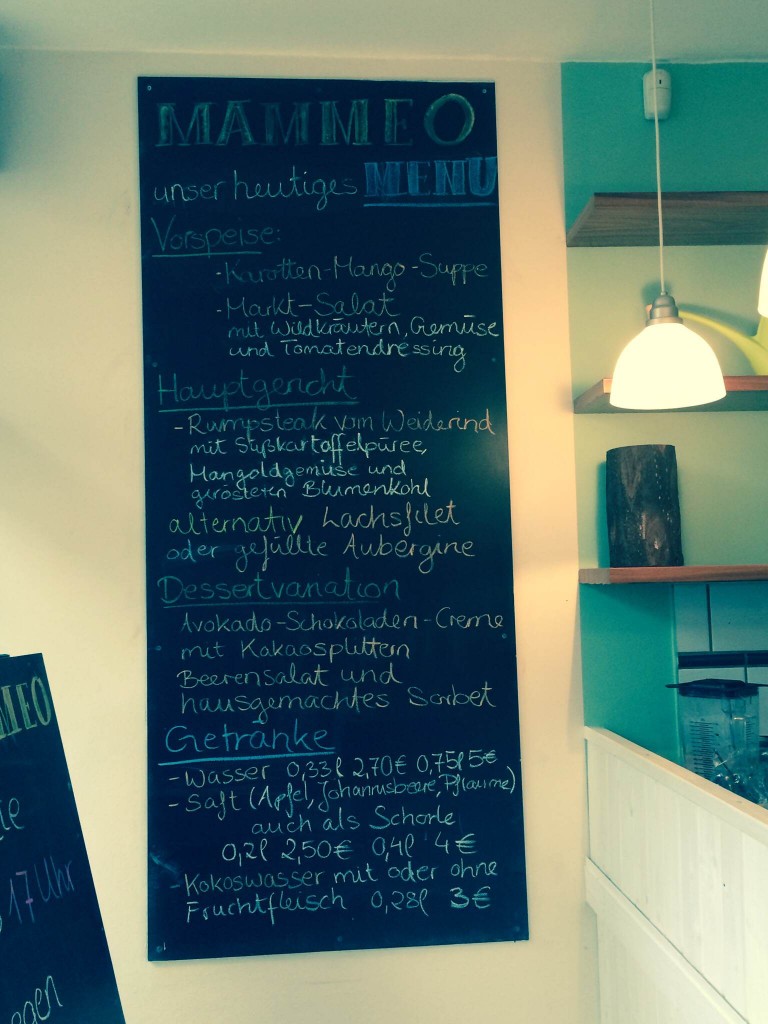 MAMMEO
unser heutiges MENÜ
Vorspeise:
- Karotten-Mango-Suppe
- Markt-Salat
mit Wildkräutern, Gemüse
und Tomatendressing
Hauptgericht
- Rumpsteak vom Weiderind
mit Süßkartoffelpüree,
Mangoldgemüse und
geröstetem Blumenkohl
alternativ Lachsfilet
oder gefüllte Aubergine
Dessertvariation
Avokado-Schokoladen-Creme
mit Kakaosplittern
Beerensalat und
hausgemachtes Sorbet
Getränke
- Wasser 0,33l 2,70€ 0,75l 5€
- Saft (Apfel, Johannisbeere, Pflaume)
auch als Schorle
0,2l 2,50€ 0,4l 4€
- Kokoswasser mit oder ohne
Fruchtfleisch 0,28l 3€
MEO
17 Uhr